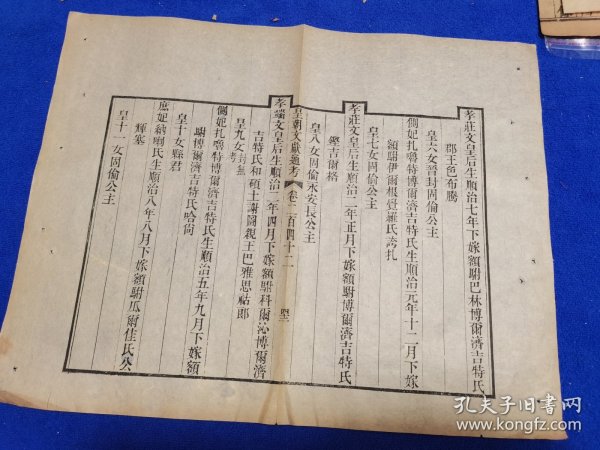 孝莊文皇后生順治七年下嫁額駙巴林博爾濟吉特氏
郡王色布騰
皇六女晉封固倫公主
側妃扎魯特博爾濟吉特氏生順治元年十二月下嫁
額駙伊爾根覺羅氏誇扎
皇七女固倫公主
孝莊文皇后生順治二年正月下嫁額駙博爾濟吉特氏
鏗吉爾格
皇八女固倫永安長公主
皇朝文獻通考 卷二百四十二
孝端文皇后生順治二年四月下嫁額駙科爾沁博爾濟
吉特氏和碩土謝圖親王巴雅思祜郎
皇九女封無考
側妃扎魯特博爾濟吉特氏生順治五年九月下嫁額
駙博爾濟吉特氏哈尙
皇十女縣君
庶妃納喇氏生順治八年八月下嫁額駙瓜爾佳氏公
輝塞
皇十一女固倫公主
孔夫子旧书网
www.kongfz.com